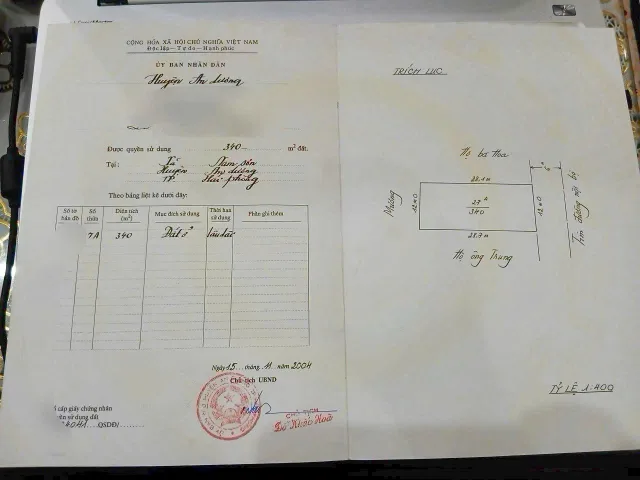 CỘNG HÒA XÃ HỘI CHỦ NGHĨA VIỆT NAM
Độc lập – Tự do – Hạnh phúc
ỦY BAN NHÂN DÂN
Huyện An dương
Được quyền sử dụng 340 m² đất.
Tại: Xã Nam sơn
Huyện An dương
TP. Hải phòng
Theo bảng liệt kê dưới đây:
Số tờ bản đồ Số thửa Diện tích (m²) Mục đích sử dụng Thời hạn sử dụng Phần ghi thêm
7A 340 Đất ở lâu dài
Ngày 15 tháng 11 năm 2004
Chủ tịch UBND
CHỦ TỊCH
cấp giấy chứng nhận
yền sử dụng đất
QSDĐ/
TRÍCH LỤC
Hộ bà Hoa
Mương
12m0
340
12m0
Hộ ông Trung
TỶ LỆ 1:400